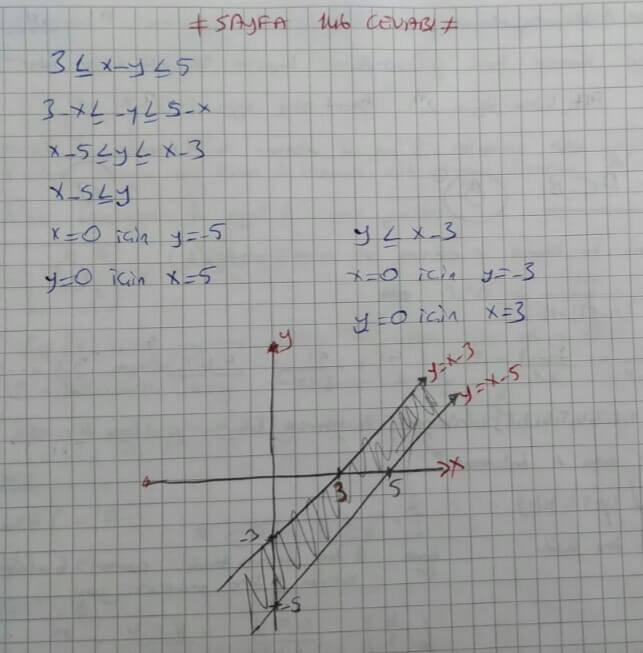 ≠ SAYFA 146 CEVABI ≠
3 ≤ x-y ≤ 5
3-x ≤ -y ≤ 5-x
x-5 ≤ y ≤ x-3
x-5 ≤ y
x=0 için y=-5
y=0 için x=5
y ≤ x-3
x=0 için y=-3
y=0 için x=3
y
y=x-3
y=x-5
x
3
5
-3
-5